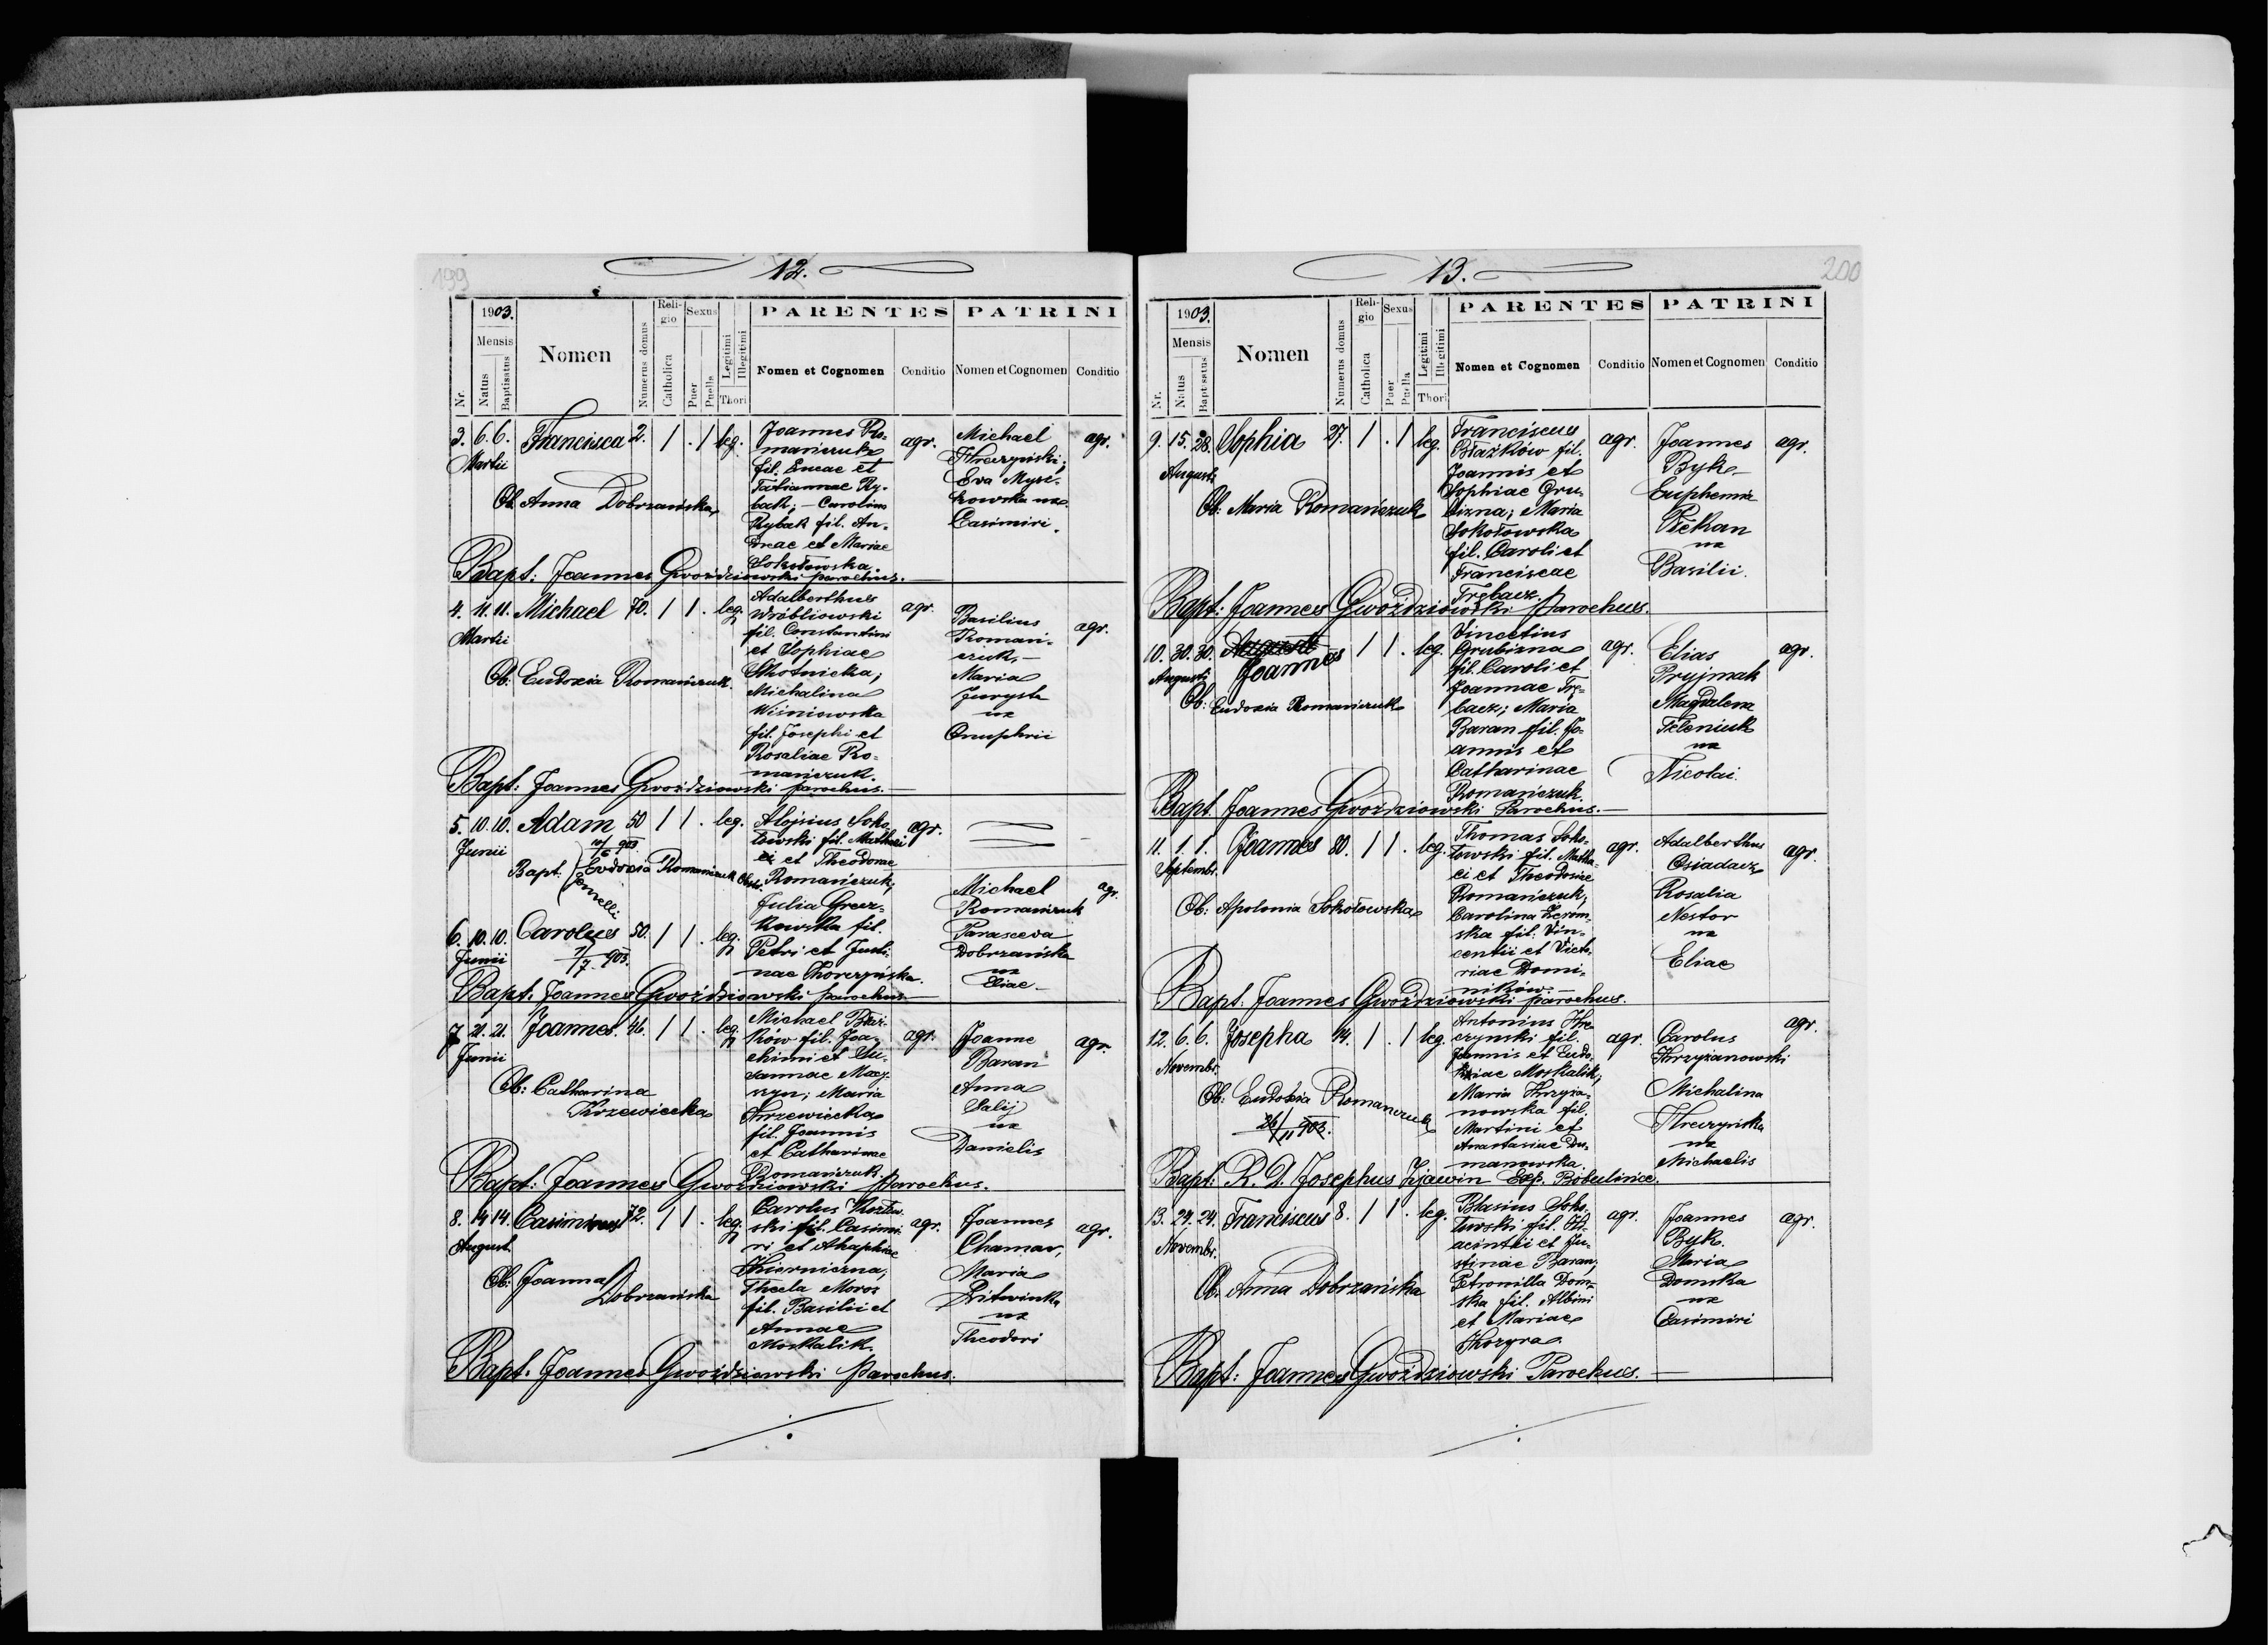 199
12.
1903.
Mensis
Nr.
Natus
Baptisatus
Nomen
Numerus domus
Reli-
gio
Catholica
Sexus
Puer
Puella
Legitimi
Illegitimi
Thori
PARENTES
Nomen et Cognomen
Conditio
PATRINI
Nomen et Cognomen
Conditio
3. 6. 6. Francisca 2. 1 . 1 leg.
Martii
Ob. Anna Dobrzańska
Joannes Ro-
mańczuk
fil. Eneae et
Tatiannae Ry-
bak; – Carolina
Rybak fil. An-
dreae et Mariae
Sokołowska.
agr.
Michael
Hreczyński;
Eva Mysz-
kowska ux.
Casimiri.
agr.
Bapt: Joannes Gwoździowski parochus.
4. 11. 11. Michael 70. 1 1 . leg.
Martii
Ob: Eudoxia Romańczuk.
Adalberthus
Wróbliowski
fil. Constantini
et Sophiae
Skotnicka;
Michalina
Wiśniowska
fil. Josephi et
Rosaliae Ro-
mańczuk.
agr.
Basilius
Romań-
czuk, –
Maria
Juryста
ux
Onuphrii
agr.
Bapt: Joannes Gwoździowski parochus. –
5. 10. 10. Adam 50 1 1 . leg.
Junii
10/6 903.
Bapt. Eudoxia Romańczuk Obst.
Gemelli
6. 10. 10. Carolus 50. 1 1 . leg.
Junii
7/7. 903.
Alojsius Soko-
łowski fil. Mathaei
et Theodorae
Romańczuk;
Julia Grecz-
kowska fil.
Petri et Justi-
nae Chorczyńska.
agr.
Michael
Romańczuk
Parasceva
Dobrzańska
ux
Eliae –
agr.
Bapt: Joannes Gwoździowski parochus –
7 21. 21. Joannes. 46. 1 1 . leg.
Junii
Ob: Catharina
Krzewiecka
Michael Błaż-
ków fil. Joa-
chimi et Su-
sannae
Maria
Krzewiecka
fil. Joannis
et Catharinae
Romańczuk
agr.
Joanne
Baran
Anna
Salij
ux
Danielis
agr.
Bapt: Joannes Gwoździowski parochus.
8. 14 14. Casimirus 32. 1 1 . leg.
August.
Ob: Joanna
Dobrzańska
Carolus
ski fil. Casimi-
ri et Ahaphiae
Thecla Moroz
fil. Basilii et
Annae
Moskalik.
agr.
Joannes
Chamar,
Maria
Litwinka
ux
Theodori
agr.
Bapt: Joannes Gwoździowski parochus.
200
13.
1903.
Mensis
Nr.
Natus
Baptisatus
Nomen
Numerus domus
Reli-
gio
Catholica
Sexus
Puer
Puella
Legitimi
Illegitimi
Thori
PARENTES
Nomen et Cognomen
Conditio
PATRINI
Nomen et Cognomen
Conditio
9. 15. 28. Sophia 27. 1 . 1 leg.
Augusti
Ob: Maria Romańczuk
Franciscus
Błażków fil.
Joannis et
Sophiae Gru-
bizna; Maria
Sokołowska
fil. Caroli et
Franciscae
Trębacz.
agr.
Joannes
Byk –
Euphemia
Pekan
ux
Basilii.
agr.
Bapt: Joannes Gwoździowski Parochus.
10. 30. 30. Joannes 1 1 . leg.
Augusti
Ob: Eudoxia Romańczuk
Vincetius
Grubizna
fil. Caroli et
Joannae Trę-
bacz; Maria
Baran fil. Jo-
annis et
Catharinae
Romańczuk.
agr.
Elias
Pryjmak
Magdalena
Feleniuk
ux
Nicolai.
agr.
Bapt. Joannes Gwoździowski Parochus. –
11. 1. 1. Joannes 80. 1 1 . leg.
Septembr.
Ob: Apolonia Sokołowska
Thomas Soko-
łowski fil. Matha-
ei et Theodosiae
Romańczuk;
Carolina Zerom-
ska fil. Vin-
centii et Victo-
riae Domi-
ników. –
agr.
Adalberthus
Osiadacz
Rosalia
Nestor
ux
Eliae
agr.
Bapt: Joannes Gwoździowski parochus.
12. 6. 6. Josepha 14. 1 . 1 leg.
Novembr.
Ob: Eudoxia Romańczuk
26/11 903.
Antonius Hre-
czynski fil.
Joannis et Eudo-
xiae Moskalik;
Maria Krzyża-
nowska fil.
Martini et
Anastasiae Du-
manowska.
agr.
Carolus
Krzyżanowski
Michalina
Hreczyńska
ux
Michaelis
agr.
Bapt: R. D. Josephus Zjawin Exp. Bobulińce.
13. 24. 24. Franciscus 8. 1 1 . leg.
Novembr.
Ob. Anna Dobrzańska
Blasius Soko-
łowski fil. Hy-
acinthi et Ju-
stinae Baran;
Petronilla Dom-
ska fil. Albini
et Mariae
agr.
Joannes
Byk.
Maria
Domska
ux
Casimiri
agr.
Bapt: Joannes Gwoździowski Parochus. –